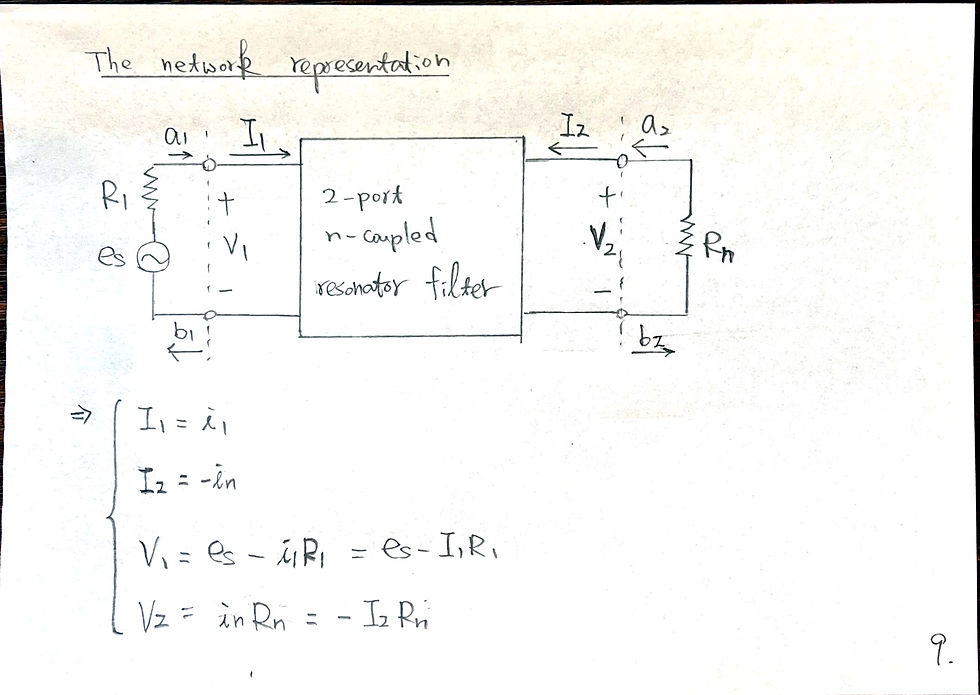 The network representation
a1 I1 I2 a2
R1 + 2-port +
es V1 n-coupled V2 Rn
- resonator filter -
b1 b2
⇒ { I1 = i1
I2 = -in
V1 = es - i1R1 = es - I1R1
V2 = inRn = - I2Rn
9.